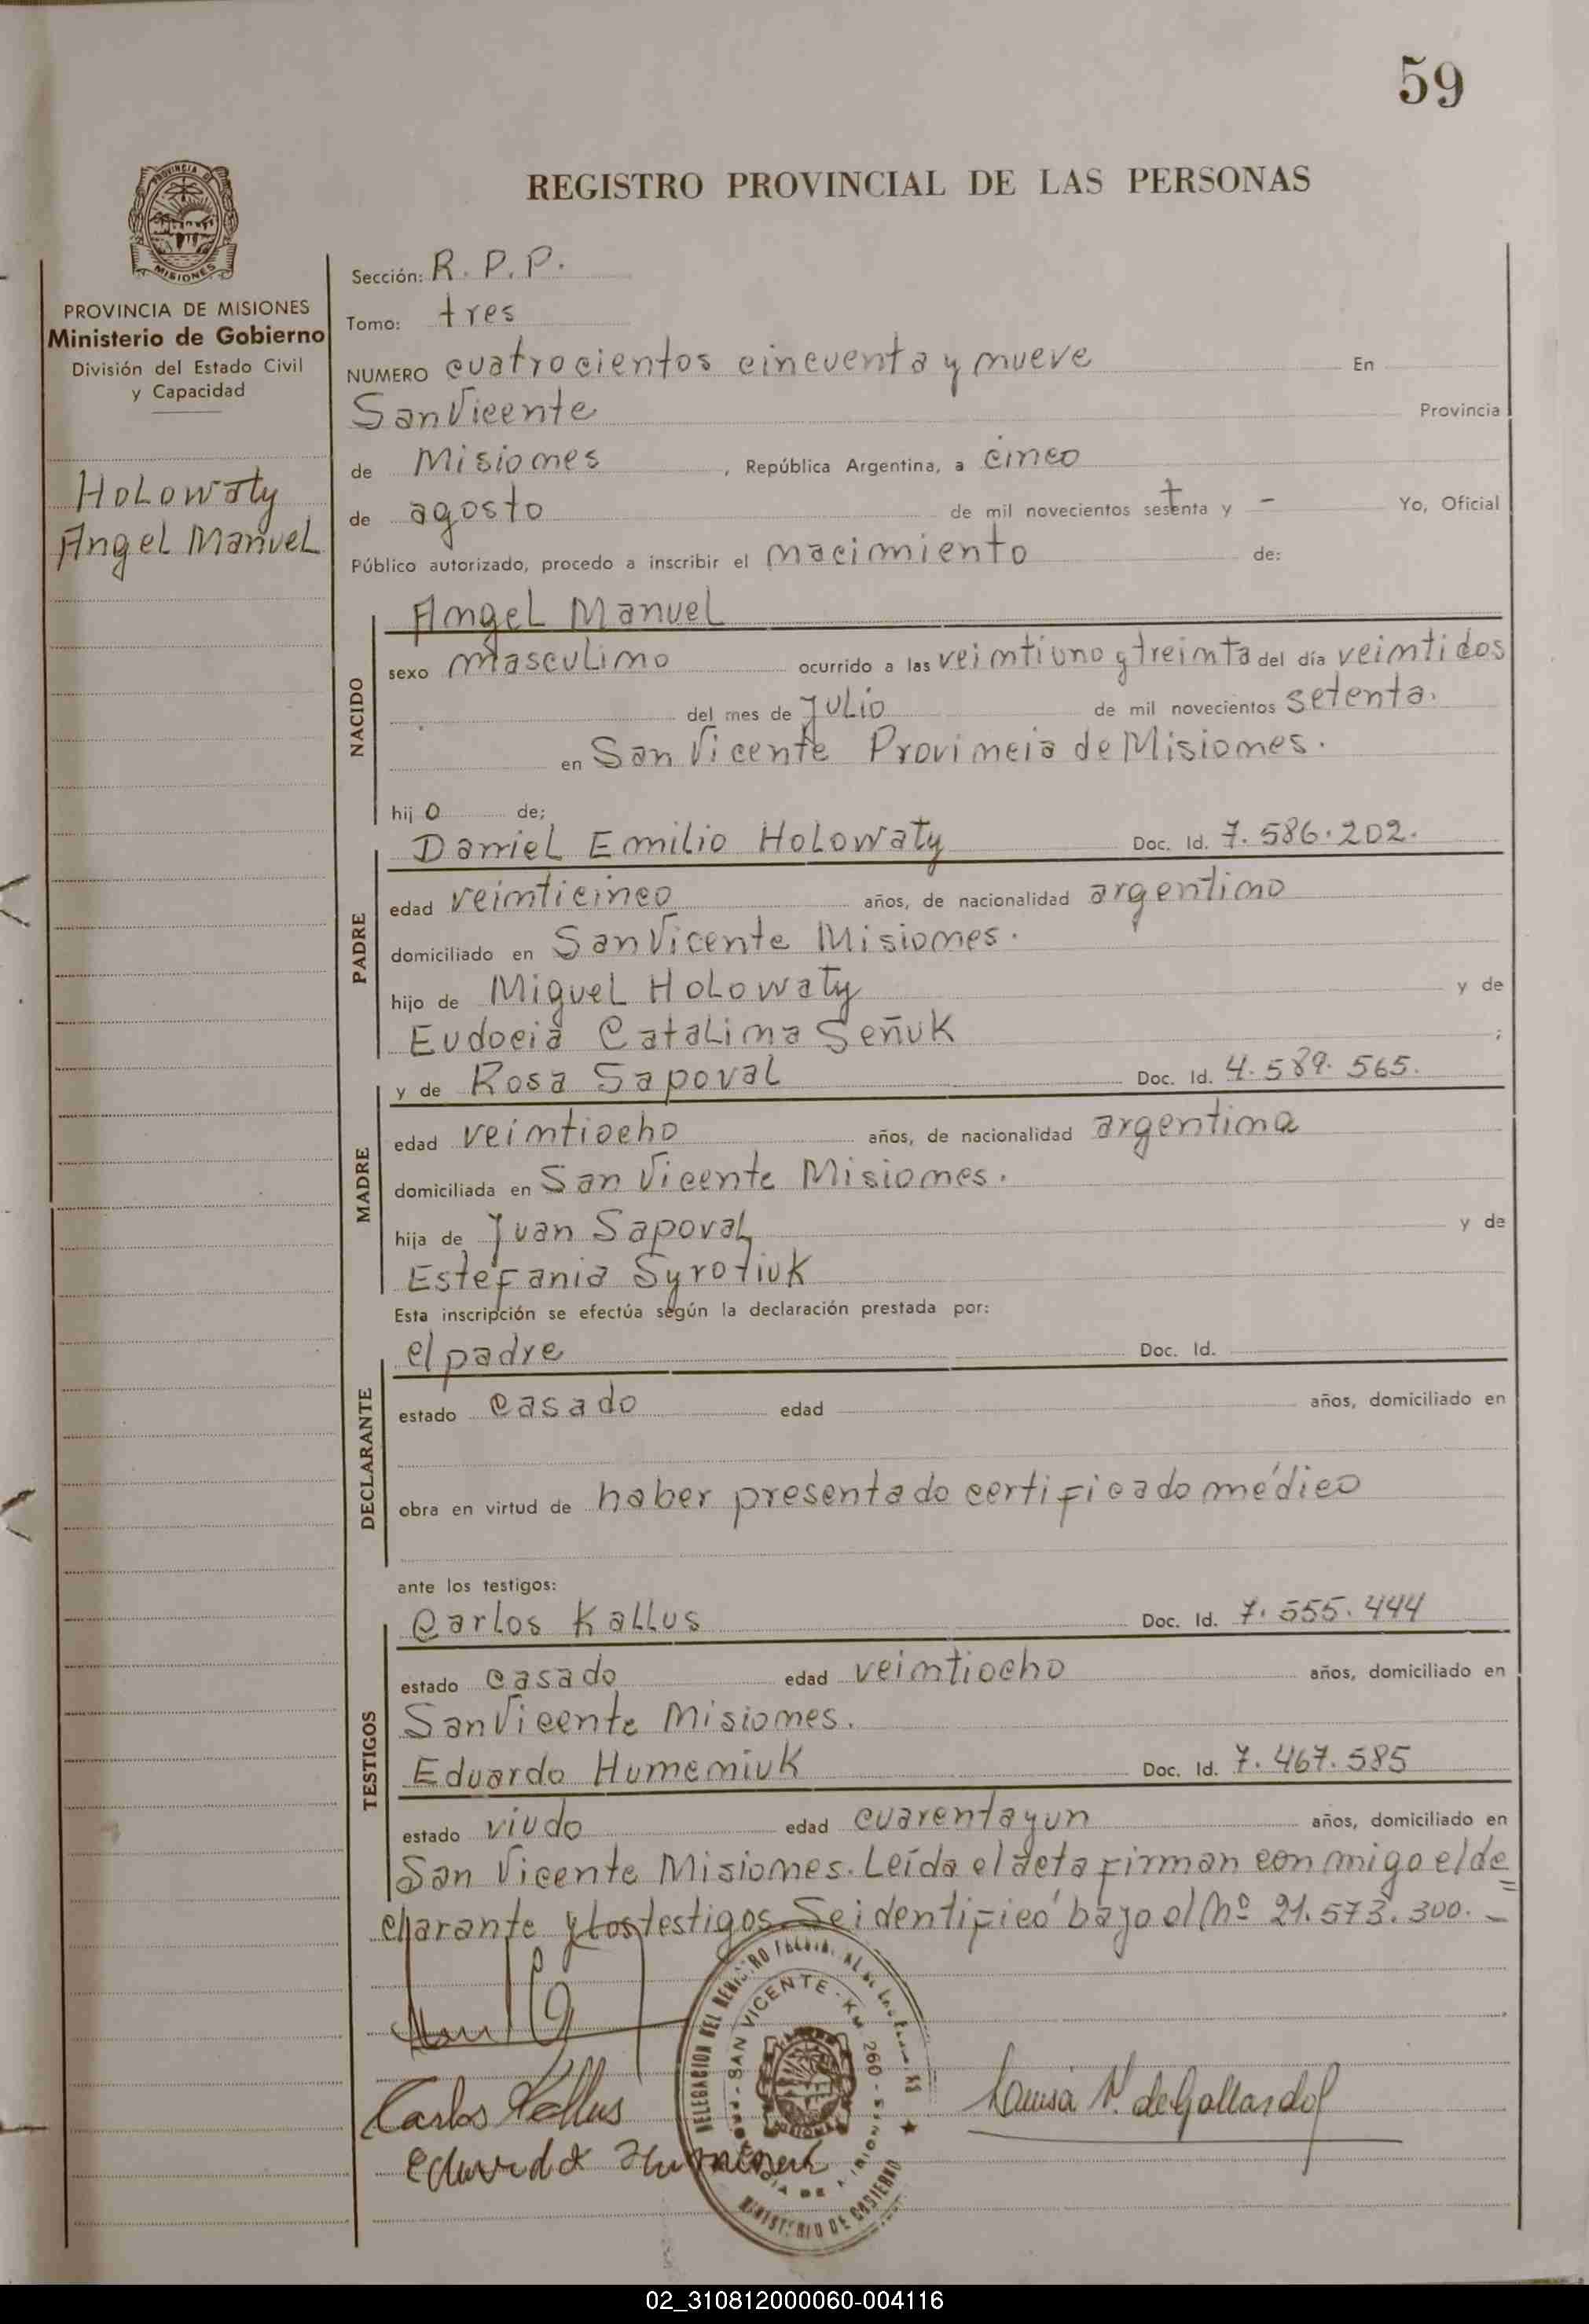 59
REGISTRO PROVINCIAL DE LAS PERSONAS
PROVINCIA DE
MISIONES
PROVINCIA DE MISIONES
Ministerio de Gobierno
División del Estado Civil
y Capacidad
Holowaty
Angel Manuel
Sección: R. P. P.
Tomo: tres
NUMERO cuatrocientos cincuenta y nueve En
San Vicente Provincia
de Misiones, República Argentina, a cinco
de agosto de mil novecientos setenta y - Yo, Oficial
Público autorizado, procedo a inscribir el nacimiento de:
NACIDO
Angel Manuel
sexo masculino ocurrido a las veintiuno y treinta del día veintidos
del mes de Julio de mil novecientos setenta.
en San Vicente Provincia de Misiones.
hijo de;
PADRE
Daniel Emilio Holowaty Doc. Id. 7.586.202.
edad veinticinco años, de nacionalidad argentino
domiciliado en San Vicente Misiones.
hijo de Miguel Holowaty y de
Eudocia Catalina Señuk ;
MADRE
y de Rosa Sapoval Doc. Id. 4.589.565.
edad veintiocho años, de nacionalidad argentina
domiciliada en San Vicente Misiones.
hija de Juan Sapoval y de
Estefania Syrotiuk
Esta inscripción se efectúa según la declaración prestada por:
DECLARANTE
el padre Doc. Id.
estado casado edad años, domiciliado en
obra en virtud de haber presentado certificado médico
ante los testigos:
TESTIGOS
Carlos Kallus Doc. Id. 7.555.444
estado casado edad veintiocho años, domiciliado en
San Vicente Misiones.
Eduardo Humeniuk Doc. Id. 7.467.585
estado viudo edad cuarenta y un años, domiciliado en
San Vicente Misiones. Leída el acta firman conmigo el de=
clarante y los testigos. Se identificó bajo el Nº 21.573.300. -
DELEGACION DEL REGISTRO
SAN VICENTE - KM. 260
MINISTERIO DE GOBIERNO
Carlos Kallus
Luisa N. de Gallardo
02_310812000060-004116